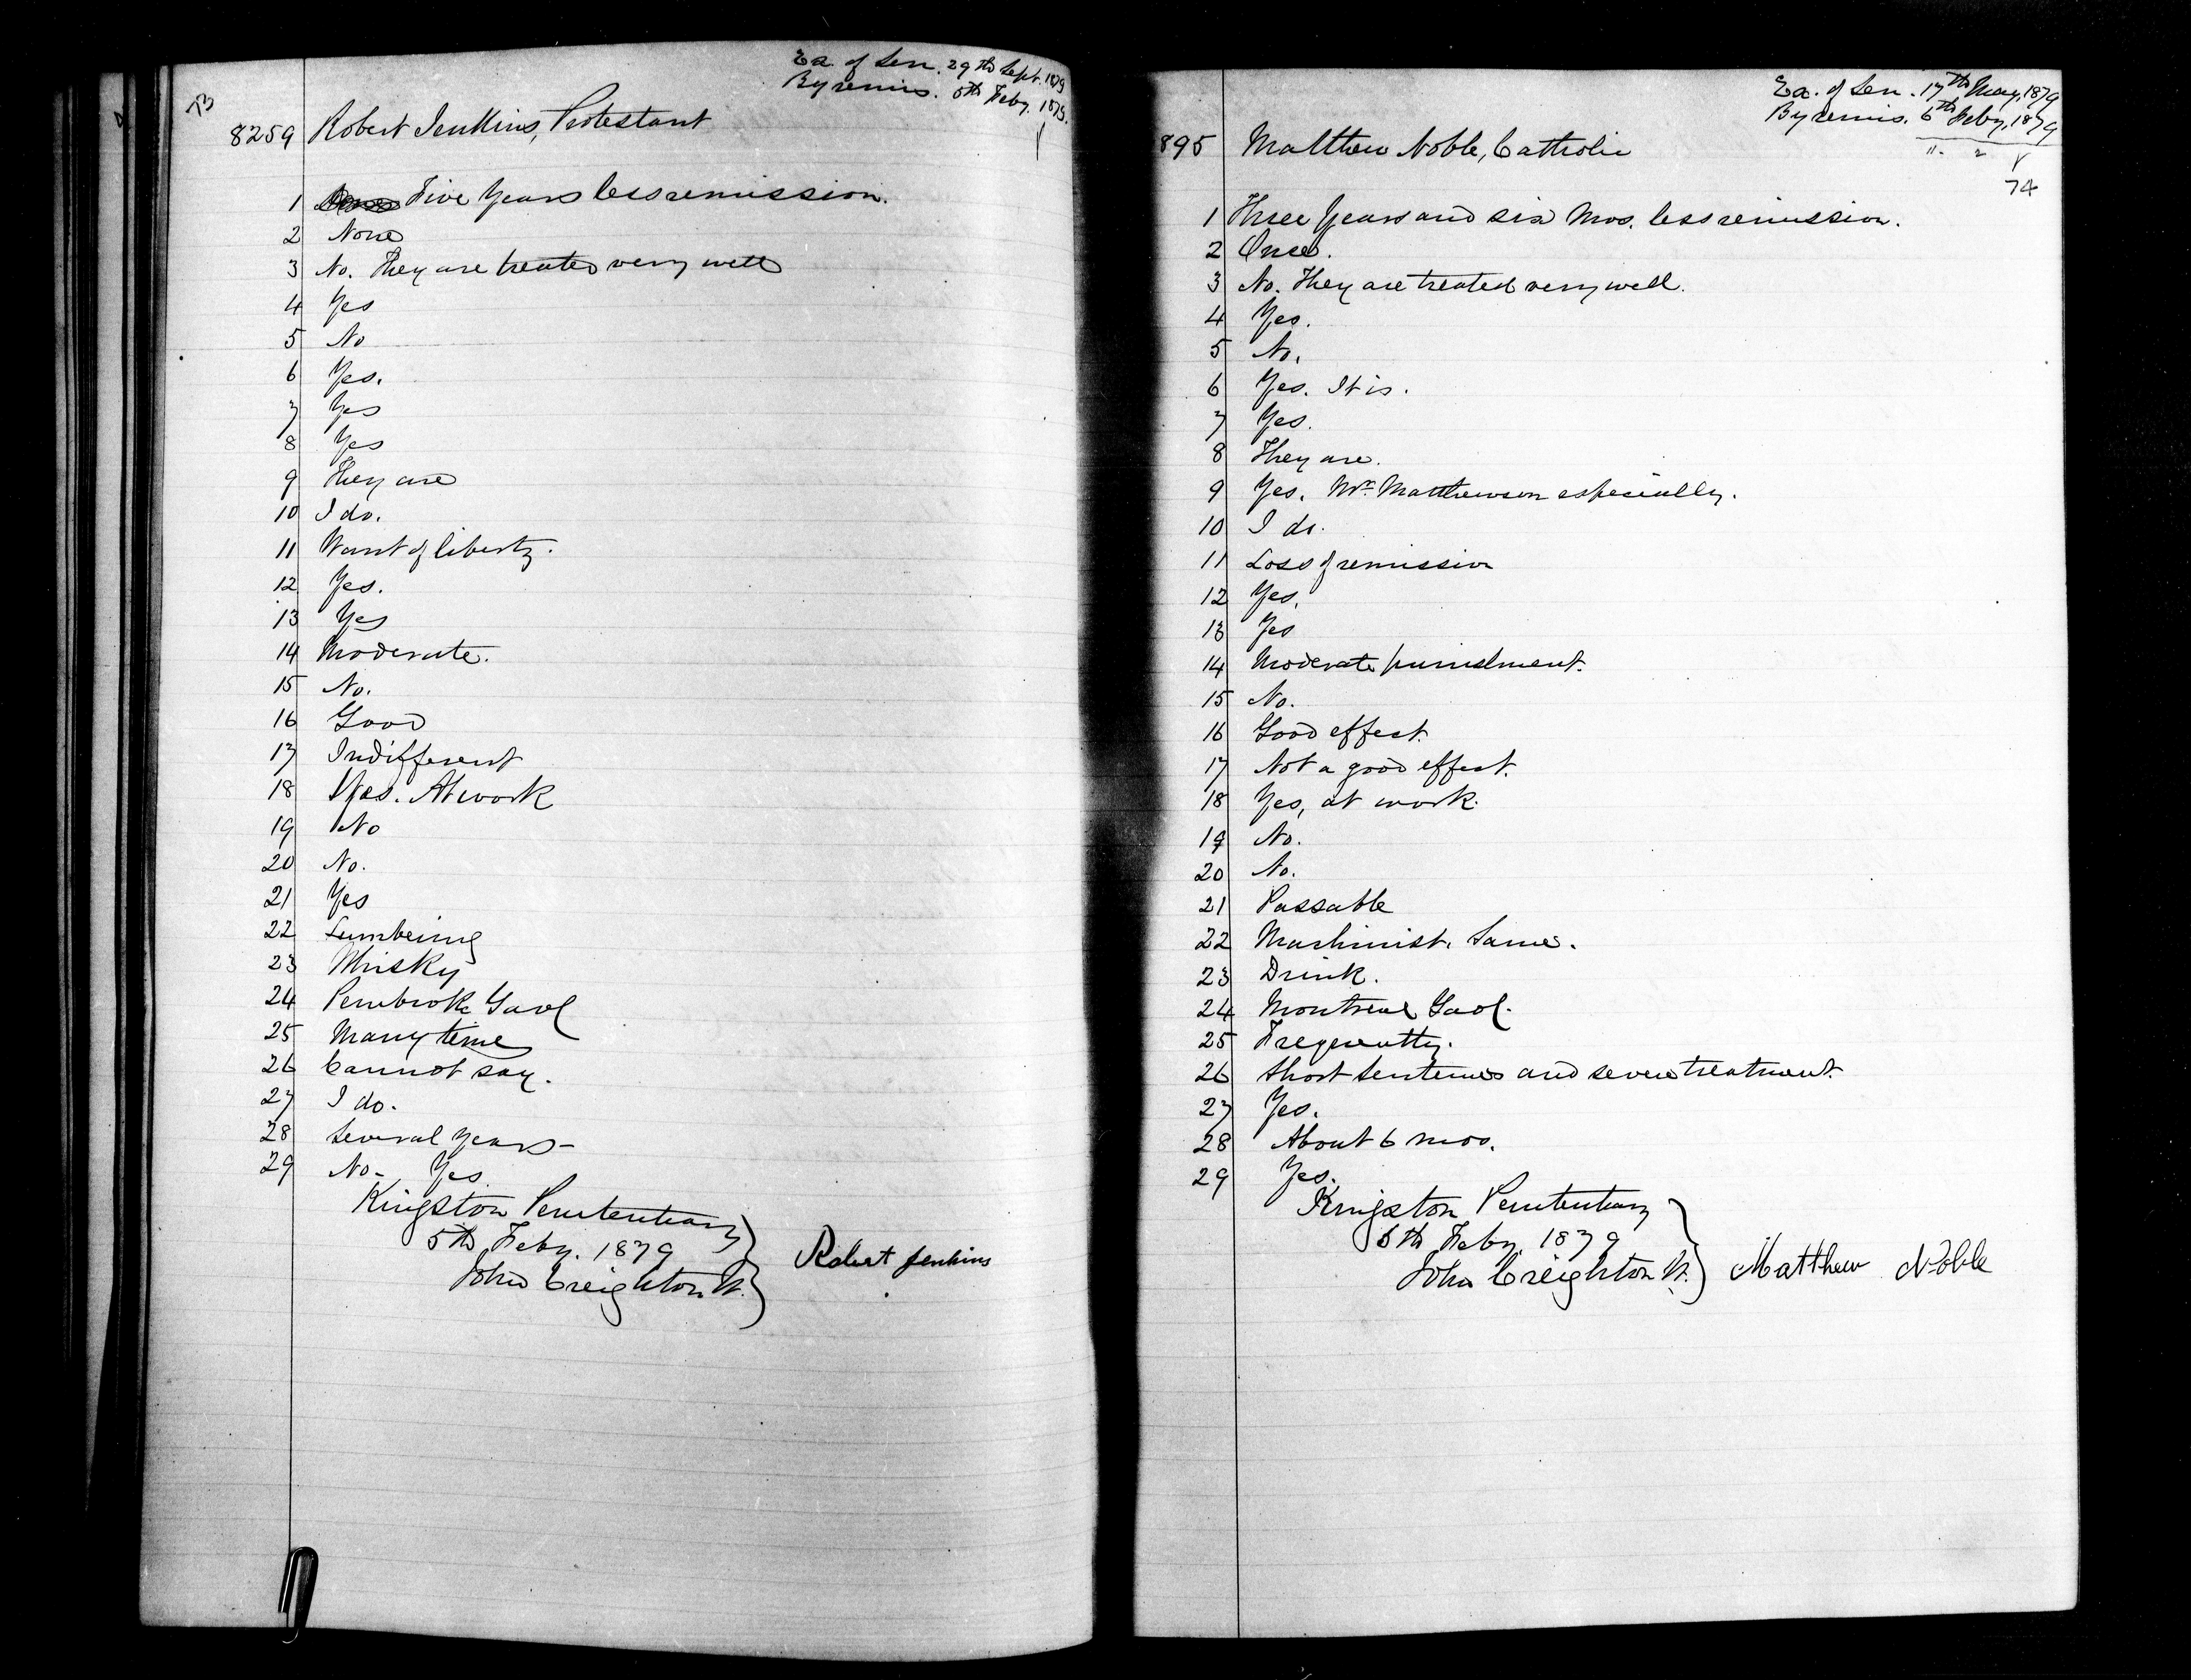 73
Ex. of Sen. 29th Sept. 1879
By remis. 5th Feby. 1879.
8259 Robert Jenkins, Protestant
1 Five Years less remission.
2 None
3 No. They are treated very well
4 Yes
5 No
6 Yes.
7 Yes
8 Yes
9 They are
10 I do.
11 Want of liberty.
12 Yes.
13 Yes
14 Moderate.
15 No.
16 Good
17 Indifferent
18 Yes. At work
19 No
20 No.
21 Yes
22 Lumbering
23 Whisky
24 Pembroke Gaol
25 Many time
26 Cannot say.
27 I do.
28 Several years -
29 No - Yes
Kingston Penitentiary
5th Feby. 1879
John Creighton W. Robert Jenkins
Ex. of Sen. 17th May, 1879
By remis. 6th Feby, 1879
74
895 Matthew Noble, Catholic
1 Three Years and six Mos. less remission.
2 Once.
3 No. They are treated very well.
4 Yes.
5 No.
6 Yes. It is.
7 Yes.
8 They are.
9 Yes. Mr. Matthewson especially.
10 I do.
11 Loss of remission
12 Yes.
13 Yes
14 Moderate punishment.
15 No.
16 Good effect.
17 Not a good effect.
18 Yes, at work.
19 No.
20 No.
21 Passable
22 Machinist. Same.
23 Drink.
24 Montreal Gaol.
25 Frequently.
26 Short sentences and severe treatment.
27 Yes.
28 About 6 mos.
29 Yes.
Kingston Penitentiary
6th Feby. 1879
John Creighton W. Matthew Noble